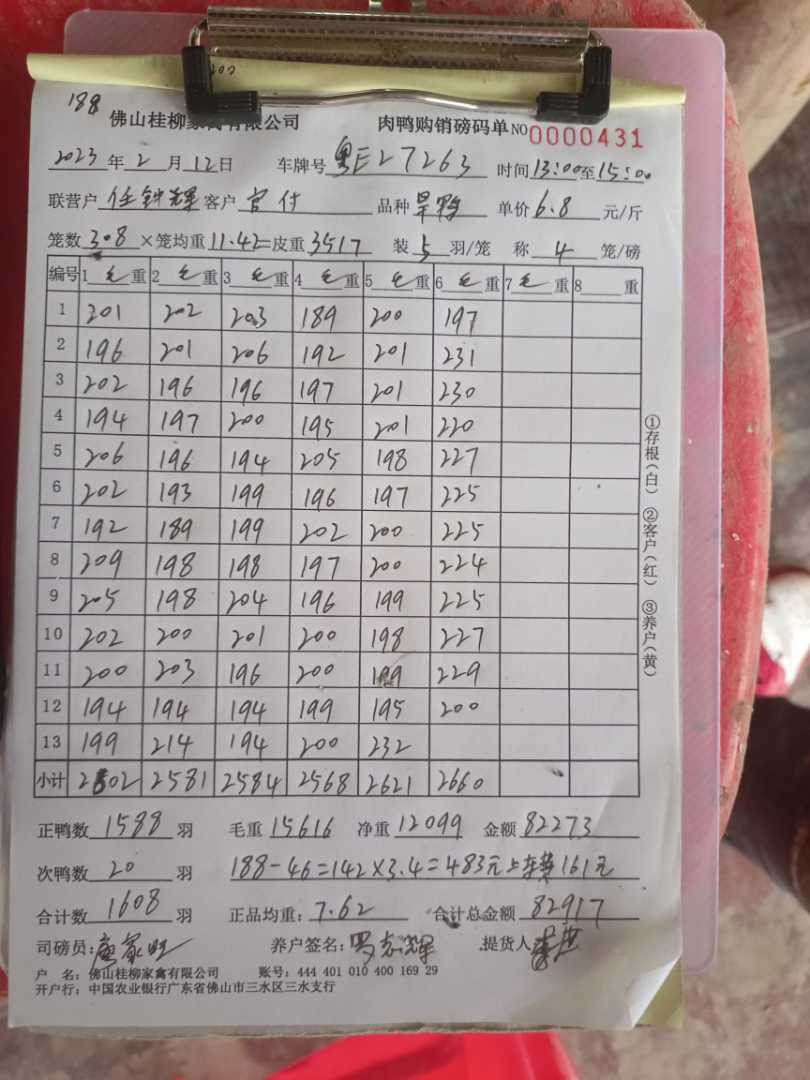 188
佛山桂柳家禽有限公司 肉鸭购销磅码单 NO 0000431
2023年2月12日 车牌号 粤E27263 时间13:00至15:00
联营户 任钟辉 客户 官付 品种 旱鸭 单价6.8元/斤
笼数308×笼均重11.42=皮重3517 装5羽/笼 称4笼/磅
编号 1毛重 2毛重 3毛重 4毛重 5毛重 6毛重 7毛重 8重
1 201 202 203 189 200 197
2 196 201 206 192 201 231
3 202 196 196 197 201 230
4 194 197 200 195 201 220
5 206 196 194 205 198 227
6 202 193 199 196 197 225
7 192 189 199 202 200 225
8 209 198 198 197 200 224
9 205 198 204 196 199 225
10 202 200 201 200 198 227
11 200 203 196 200 199 229
12 194 194 194 199 195 200
13 199 214 194 200 232
小计 2602 2581 2584 2568 2621 2660
正鸭数1588羽 毛重15616 净重12099 金额82273
次鸭数20羽 188-46=142×3.4=483元上车费161元
合计数1608羽 正品均重:7.62 合计总金额82917
司磅员: 养户签名: 罗志辉 提货人
户 名: 佛山桂柳家禽有限公司 账号: 444 401 010 400 169 29
开户行: 中国农业银行广东省佛山市三水区三水支行
①存根(白) ②客户(红) ③养户(黄)